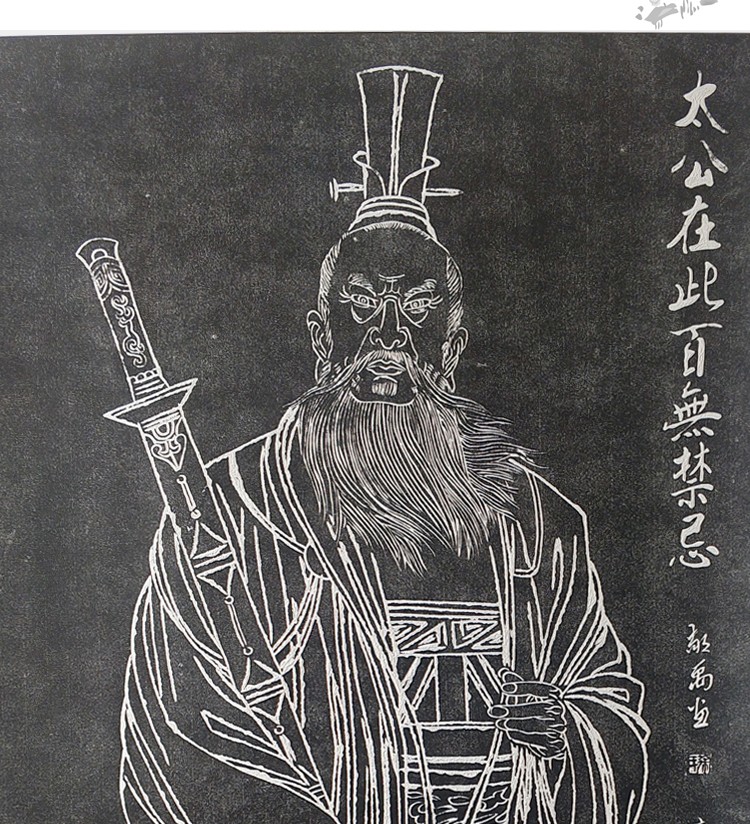 太公在此百無禁忌